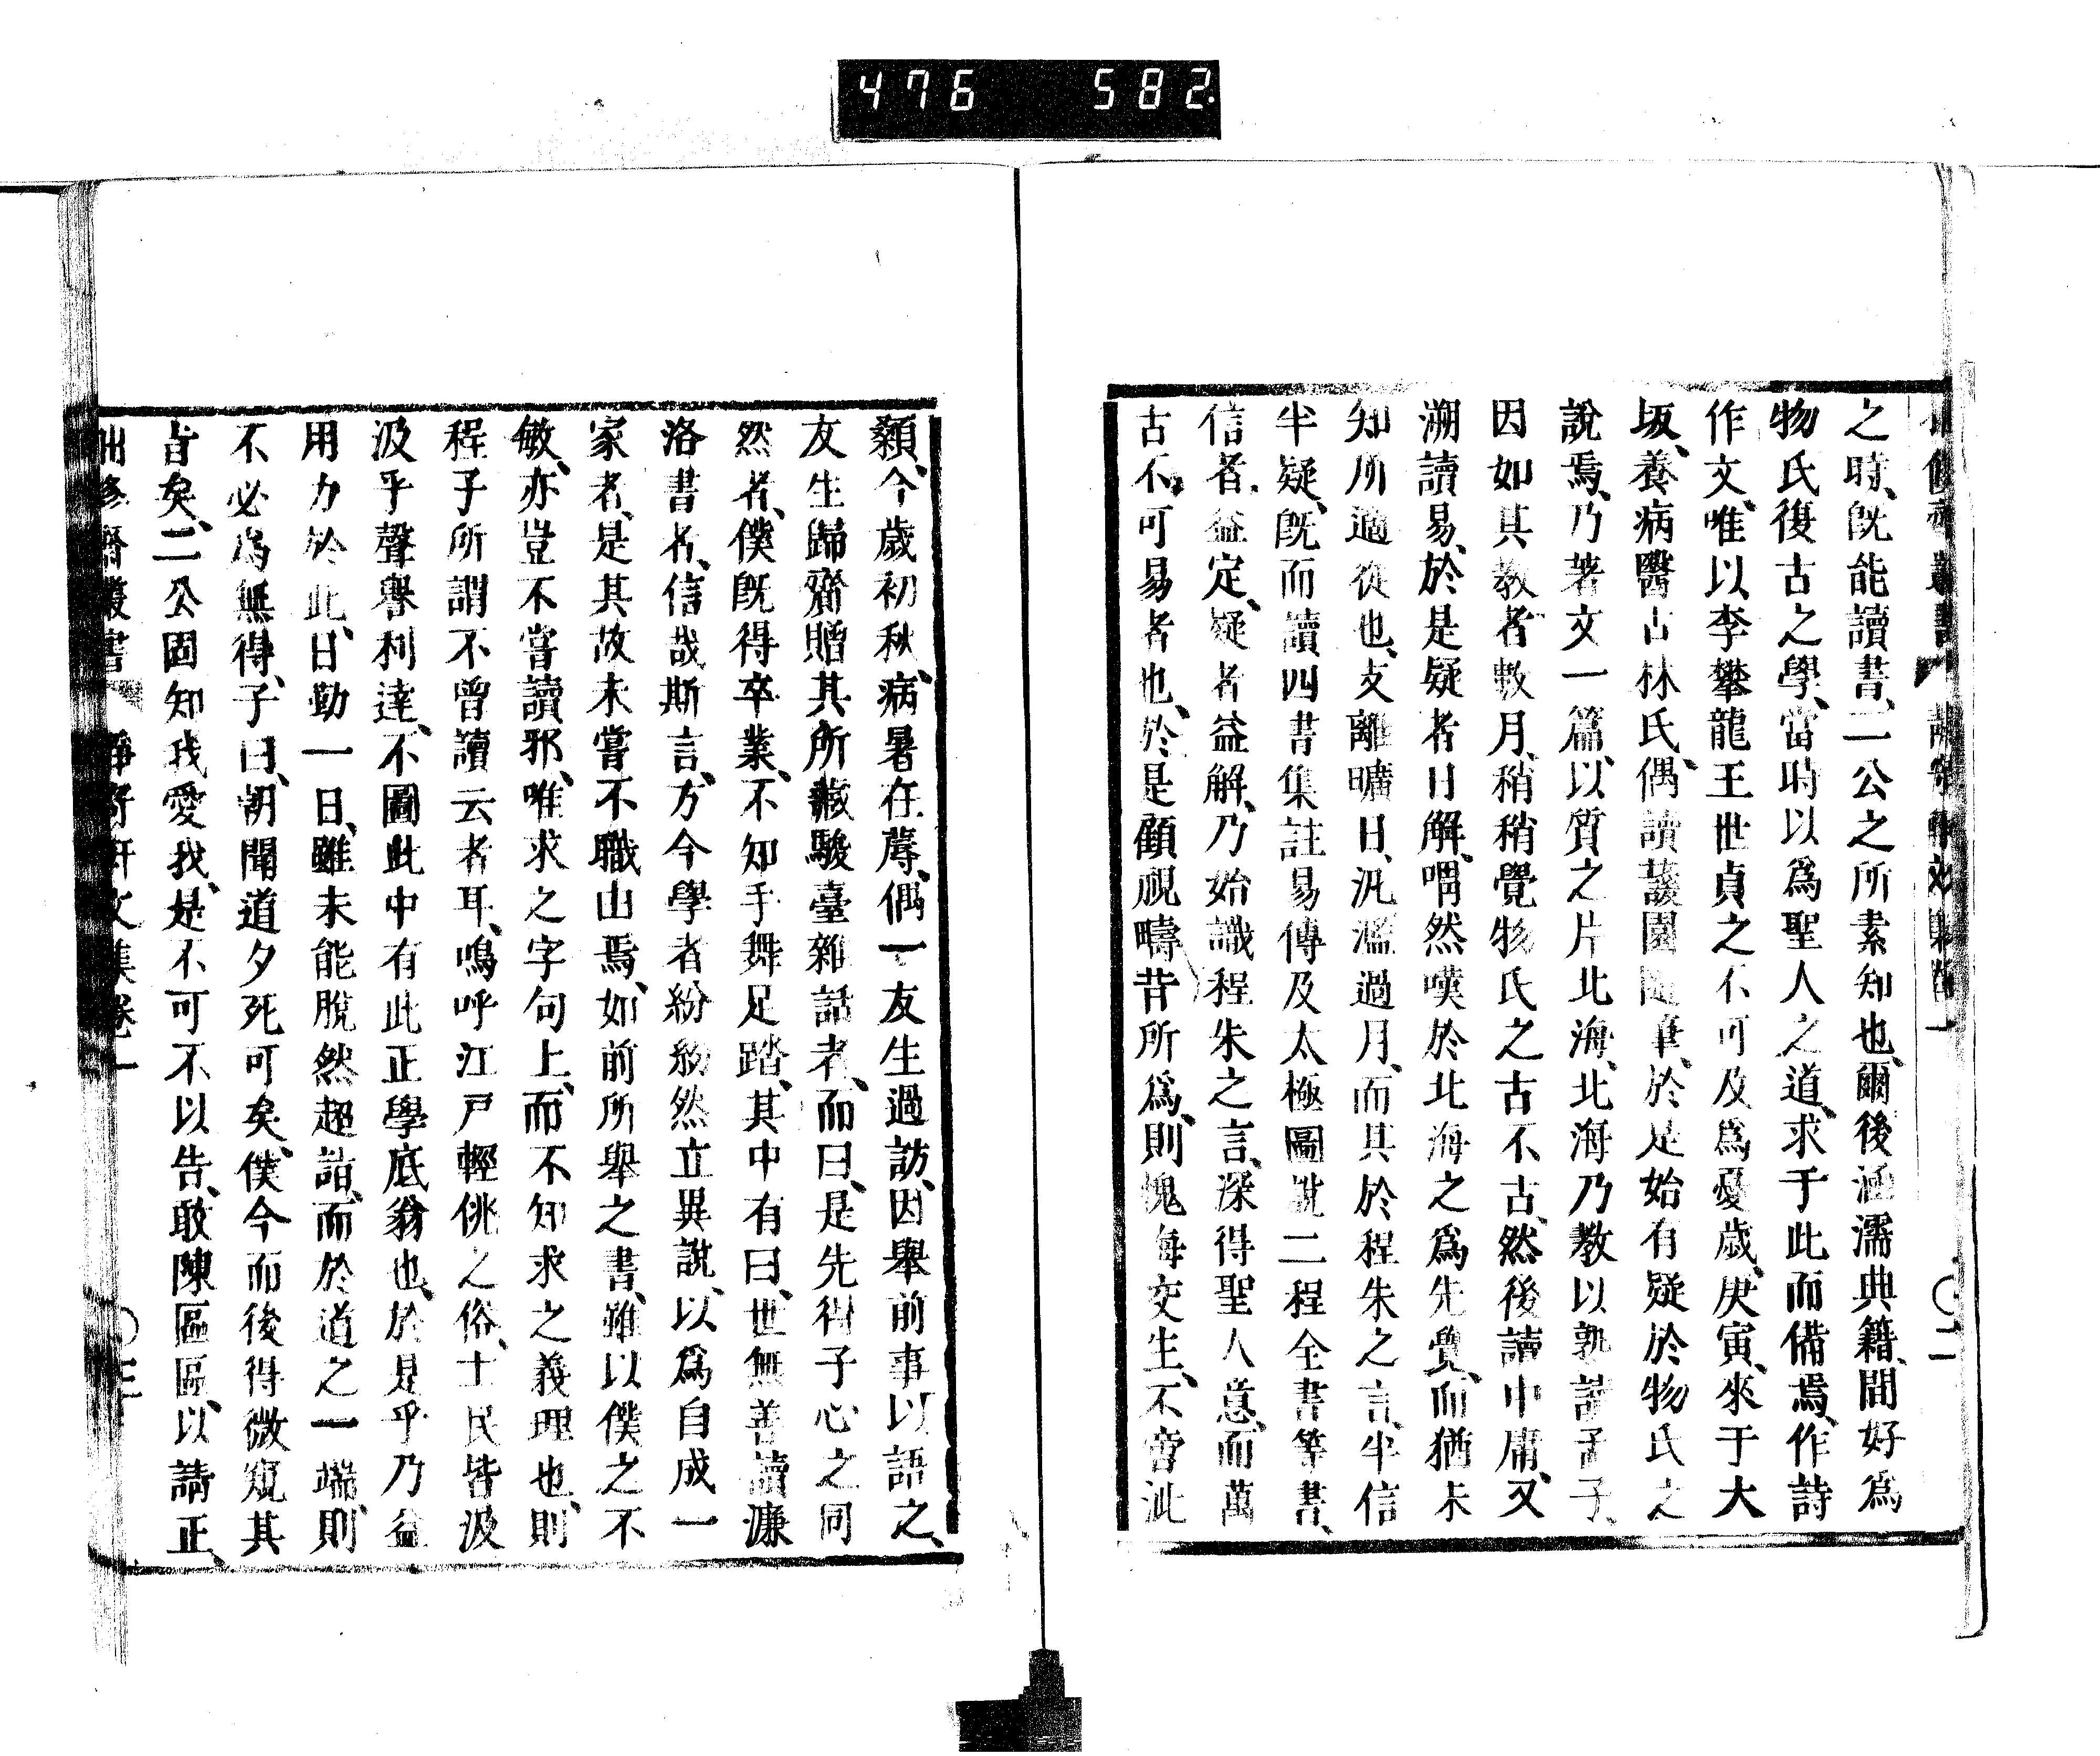 476 582
之時、既能讀書、二公之所素知也、爾後涵濡典籍、間好爲
物氏復古之學、當時以爲聖人之道、求于此而備焉、作詩
作文、唯以李攀龍王世貞之不可及爲憂歲、庚寅、來于大
坂、養病醫古林氏、偶讀護園隨筆、於是始有疑於物氏之
說焉、乃著文一篇、以質之片北海、北海乃教以熟讀孟子、
因如其教者數月、稍稍覺物氏之古不古、然後讀中庸、又
溯讀易、於是疑者日解、喟然嘆於北海之爲先覺、而猶未
知所適從也、支離曠日、汎濫過月、而其於程朱之言、半信
半疑、既而讀四書集註易傳及太極圖說二程全書等書、
信者益定、疑者益解、乃始識程朱之言、深得聖人意、而萬
古不可易者也、於是顧視疇昔所爲、則愧悔交生、不啻泚
顙、今歲初秋、病暑在蓐、偶一友生過訪、因舉前事以語之、
友生歸齋贈其所藏駿臺雜話者、而曰、是先得子心之同
然者、僕既得卒業、不知手舞足蹈、其中有曰、世無善讀濂
洛書者、信哉斯言、方今學者紛紛然立異說、以爲自成一
家者、是其故未嘗不職由焉、如前所舉之書、雖以僕之不
敏、亦豈不嘗讀邪、唯求之字句上、而不知求之義理也、則
程子所謂不曾讀云者耳、嗚呼江戶輕佻之俗、士民皆汲
汲乎聲譽利達、不圖此中有此正學底翁也、於是乎乃益
用力於此、日勤一日、雖未能脫然超詣、而於道之一端、則
不必爲無得、子曰、朝聞道夕死可矣、僕今而後得微窺其
旨矣、二公固知我愛我、是不可不以告、敢陳區區、以請正、
修齋叢書 靜寄軒文集卷一 〇三